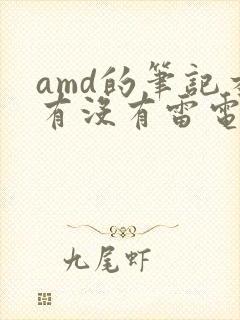 amd的筆記
有沒有雷電
九尾虾